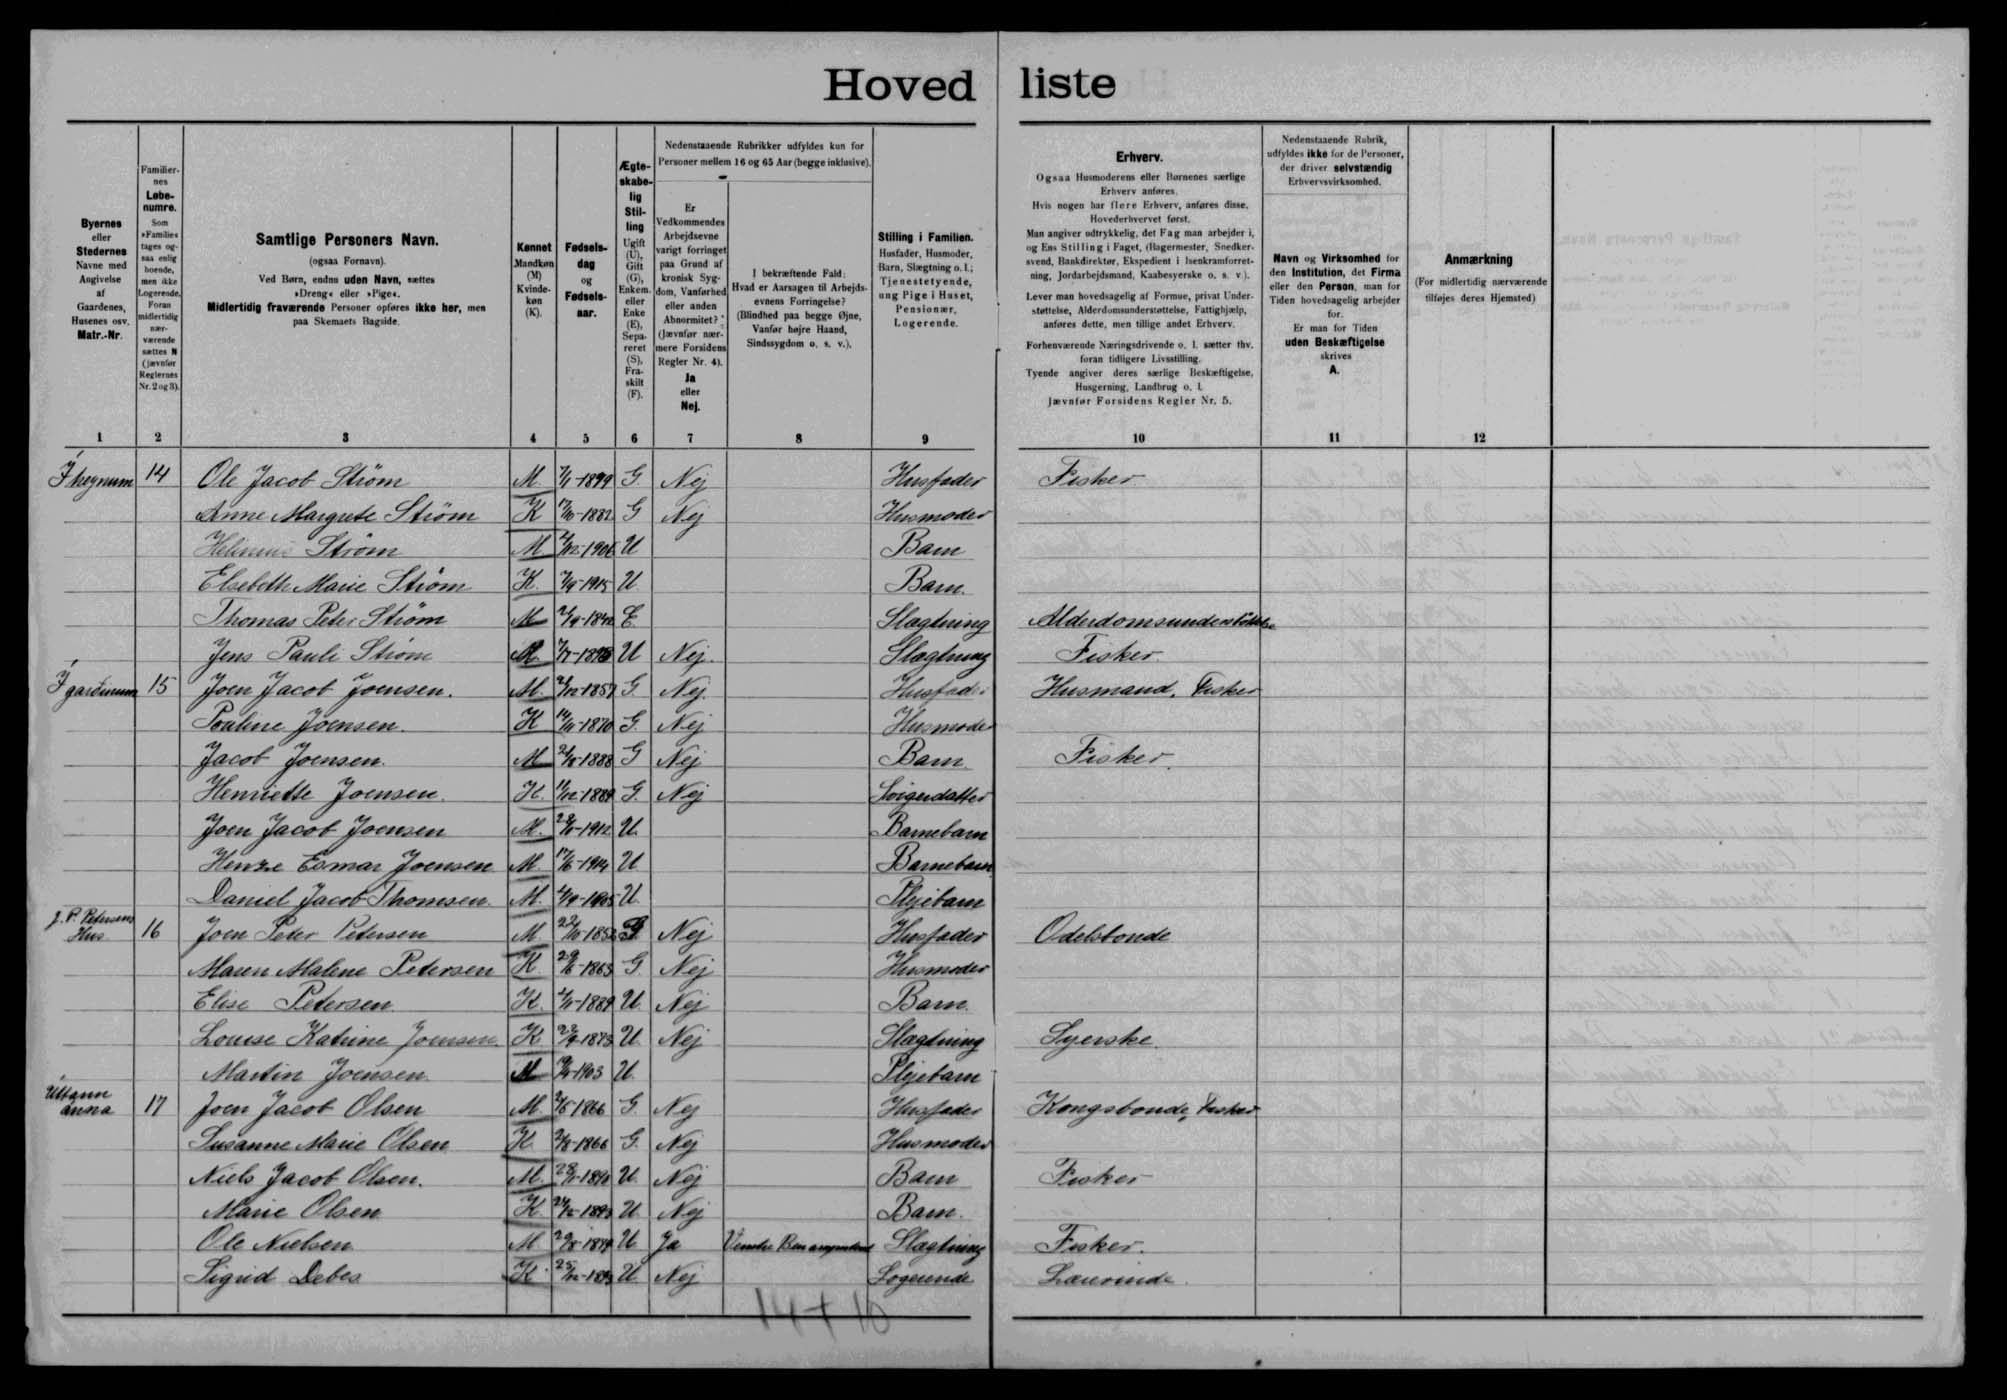 Hoved liste
Byernes
eller
Stedernes
Navne med
Angivelse
af
Gaardenes,
Husenes osv.
Matr.-Nr.
Familier-
nes
Løbe-
numre.
Som
»Familie«
tages og-
saa enlig
boende,
men ikke
Logerende.
Foran
midlertidig
nær-
værende
sættes N
(jævnfør
Reglernes
Nr. 2 og 3).
Samtlige Personers Navn.
(ogsaa Fornavn).
Ved Børn, endnu uden Navn, sættes
»Dreng« eller »Pige«.
Midlertidig fraværende Personer opføres ikke her, men
paa Skemaets Bagside.
Kønnet
Mandkøn
(M)
Kvinde-
køn
(K).
Fødsels-
dag
og
Fødsels-
aar.
Ægte-
skabe-
lig
Stil-
ling
Ugift
(U),
Gift
(G),
Enkem.
eller
Enke
(E),
Sepa-
reret
(S),
Fra-
skilt
(F).
Nedenstaaende Rubrikker udfyldes kun for
Personer mellem 16 og 65 Aar (begge inklusive).
Er
Vedkommendes
Arbejdsevne
varigt forringet
paa Grund af
kronisk Syg-
dom, Vanførhed
eller anden
Abnormitet?
(Jævnfør nær-
mere Forsidens
Regler Nr. 4).
Ja
eller
Nej.
I bekræftende Fald:
Hvad er Aarsagen til Arbejds-
evnens Forringelse?
(Blindhed paa begge Øjne,
Vanfør højre Haand,
Sindssygdom o. s. v.).
Stilling i Familien.
Husfader, Husmoder,
Barn, Slægtning o. l.;
Tjenestetyende,
ung Pige i Huset,
Pensionær,
Logerende.
Erhverv.
Ogsaa Husmoderens eller Børnenes særlige
Erhverv anføres.
Hvis nogen har flere Erhverv, anføres disse,
Hovederhvervet først.
Man angiver udtrykkelig, det Fag man arbejder i,
og Ens Stilling i Faget, (Bagermester, Snedker-
svend, Bankdirektør, Ekspedient i Isenkramforret-
ning, Jordarbejdsmand, Kaabesyerske o. s. v.).
Lever man hovedsagelig af Formue, privat Under-
støttelse, Alderdomsunderstøttelse, Fattighjælp,
anføres dette, men tillige andet Erhverv.
Forhenværende Næringsdrivende o. l. sætter thv.
foran tidligere Livsstilling.
Tyende angiver deres særlige Beskæftigelse,
Husgerning, Landbrug o. l.
Jævnfør Forsidens Regler Nr. 5.
Nedenstaaende Rubrik,
udfyldes ikke for de Personer,
der driver selvstændig
Erhvervsvirksomhed.
Navn og Virksomhed for
den Institution, det Firma
eller den Person, man for
Tiden hovedsagelig arbejder
for.
Er man for Tiden
uden Beskæftigelse
skrives
A.
Anmærkning
(For midlertidig nærværende
tilføjes deres Hjemsted)
1 2 3 4 5 6 7 8 9 10 11 12
Í heygnum 14 Ole Jacob Strøm M. G. Nej Husfader Fisker
Anne Margrete Strøm K 1882 G Nej Husmoder
Strøm M 1906 U Barn
Elsebeth Marie Strøm K. 1915 U Barn.
Thomas Peter Strøm M E. Slægtning Alderdomsunderstøttelse
Jens Pauli Strøm M. U Nej. Slægtning Fisker.
Í gardinum 15 Joen Jacob Joensen. M. 1857 G. Nej. Husfader Husmand, Fisker
Pouline Joensen. K 1870 G. Nej Husmoder
Jacob Joensen. M 1888 G Nej Barn. Fisker.
Henriette Joensen. K. 1889 G. Nej Svigerdatter
Joen Jacob Joensen M. 1912 U. Barnebarn
Esmar Joensen M. 1914 U Barnebarn
Daniel Jacob Thomsen. M. 1905 U. Plejebarn
J. P. Petersens
Hus. 16 Joen Peter Petersen M. G. Nej Husfader Odelsbonde
Maren Malene Petersen K. 1863 G. Nej Husmoder
Elise Petersen K. 1889 U. Nej Barn.
Louise Katrine Joensen. K U. Nej Slægtning Syerske
Martin Joensen M 1903 U. Plejebarn
anna 17 Joen Jacob Olsen M. 1866 G. Nej Husfader Kongsbonde, Fisker
Susanne Marie Olsen K. 1866 G. Nej Husmoder
Niels Jacob Olsen. M. U. Nej Barn Fisker
Marie Olsen K. U. Nej Barn.
Ole Nielsen M. U Ja Venstre Ben Slægtning Fisker.
Sigrid Debes K. U Nej Logerende Lærerinde.
14 + 10